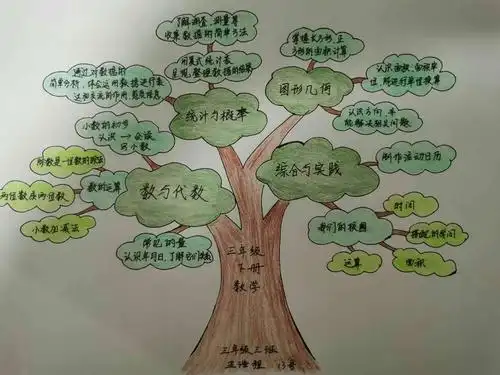 了解调查、测量等
收集数据的简单方法
用复式统计表
呈现、整理数据的结果
通过对数据的
简单分析，体会运用数据进行表
统计与概率
掌握长方形、正
方形的面积计算
认识面积、面积单
位，能进行单位换算
图形几何
认识方向，并
能解决相关问题
小数的初步
认识→会读
写小数
除数是一位数的除法
数的运算
两位数乘两位数
小数加减法
数与代数
常见的量
认识年月日，了解它们
综合与实践
制作活动日历
我们的校园
时间
运算
面积
三年级
下册
数学
三年级三班
13号